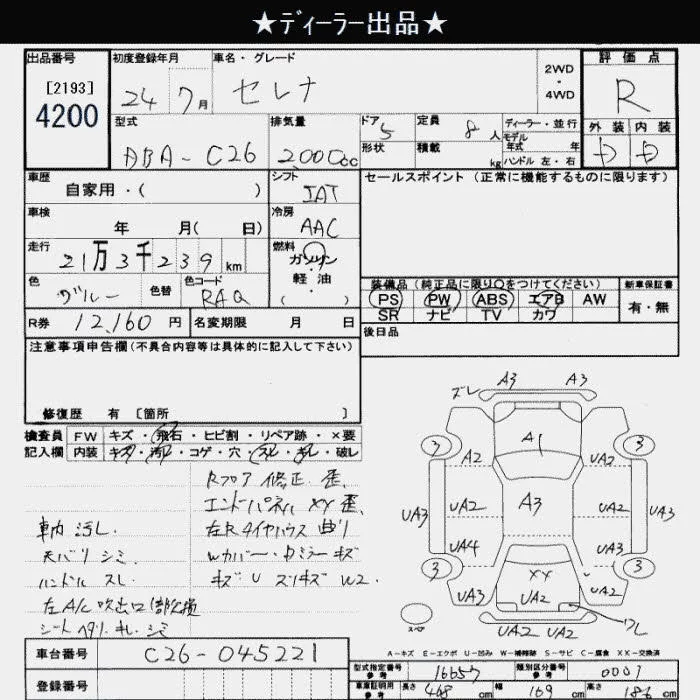 ★ディーラー出品★
出品番号
[2193]
4200
初度登録年月
24 7月
車名・グレード
セレナ
2WD
・
4WD
評価点
R
外装 内装
D D
型式
ABA-C26
排気量
2000cc
ドア
5
形状
定員
8人
積載
kg
ディーラー・並行
モデル
年式 年
ハンドル 左・右
車歴
自家用・( )
シフト
IAT
セールスポイント (正常に機能するものに限ります)
車検
年 月( 日)
冷房
AAC
走行
21万3千239km
燃料
ガソリン
軽油
( ・ )
色
ブルー
色替
色コード
RAQ
装備品 (純正品に限り○をつけてください)
PS PW ABS エアB AW
SR ナビ TV カワ
新車保証書
有・無
R券 12,160円
名変期限 月 日
後日品
注意事項申告欄(不具合内容等は具体的に記入して下さい)
修復歴 有 〔箇所 〕
検査員
記入欄
FW キズ・飛石・ヒビ割・リペア跡・×要
内装 キズ・汚れ・コゲ・穴・スレ・キレ・破レ
Rフロア 修正、歪、
エンドパネル XX 歪、
左Rタイヤハウス 曲り
Wカバー・Dミラー キズ
キズ U スリキズ W2.
車内 汚し.
天バリ シミ
ハンドル スレ.
左A/C吹出口部欠損
シート ヘタリ キレ シミ
ズレ A3 A3
3 3
A1
A2 UA2
A3
UA3 UA2 UA2 UA3
UA4 UA3
3 3
XX
UA2
UA3 UA2
ワレ
スペア
UA2 UA2
A-キズ E-エクボ U-凹み W-補修跡 S-サビ C-腐食 XX-交換済
車台番号
C26-045221
登録番号
型式指定番号
参考
16657
類別区分番号
参考
0007
車庫証明用
参考
長さ 468 cm
幅 169 cm
高さ 186 cm